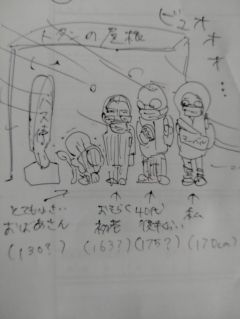 トタンの屋根
ビュオオオ…
バス停
とても小さい
おばあさん
(130?)
おそらく
初老
(163?)
40代
後半くらい
(175?)
私
(170cm)